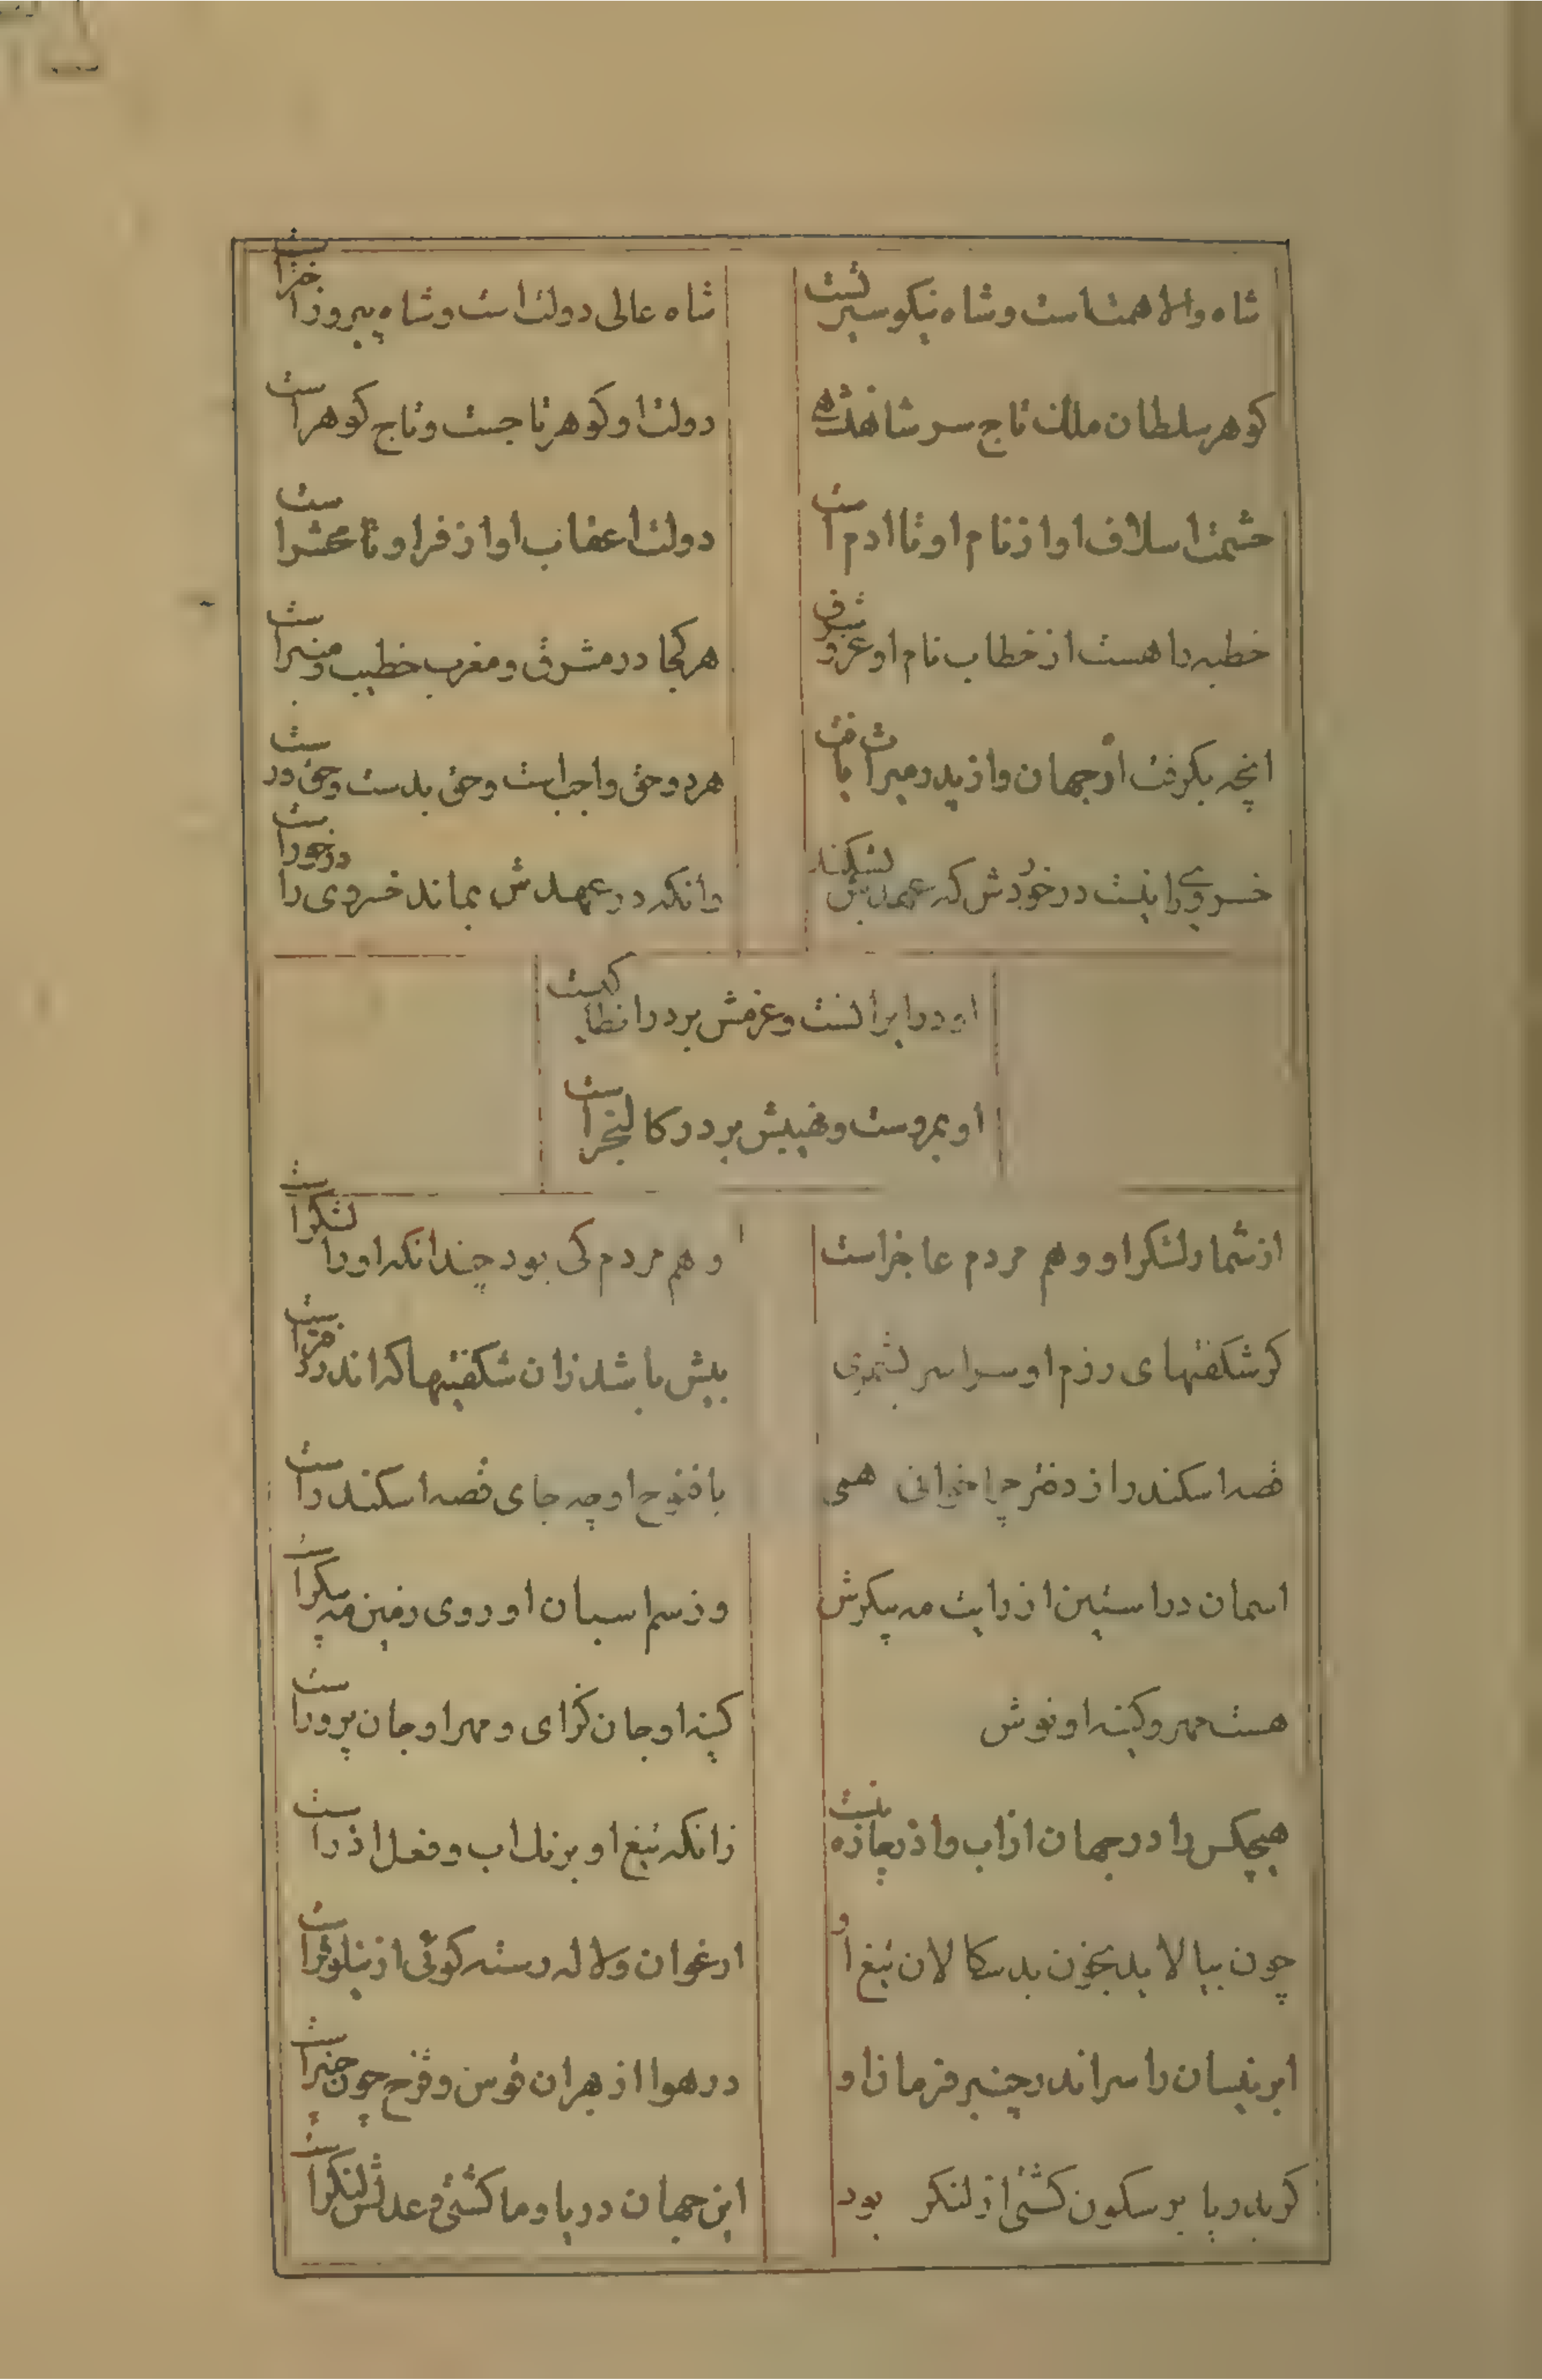 شاه والا همت است و شاه نیکو سیرتست
شاه عالی دولت است و شاه پیروز اخترست
کوهر سلطان ملک تاج سر شاهنشهی
دولت او کوهر تاجست و تاج کوهرست
حشمت اسلاف او از نام او تا ادم است
دولت اعقاب او از فر او تا محشر است
خطبه را هست از خطاب نام او عز و شرف
هر کجا در مشرق و مغرب خطیب و منبر است
انچه بکرفت از جهان و از پدر میراث یافت
هر دو حق واجب است و حق بدست حق ور است
خسروی را نیست در خور دش که عهدش بشکند
وانکه در عهدش بماند خسروی را درخور است
او در ایرانست و عزمش بر در انطاکیست
او بمروست و نهیبش بر در کالنجر است
از شمار لشکر او وهم مردم عاجز است
وهم مردم کی بود چندانکه او را لشکر است
کر شکفتیهای رزم او سراسر بشمری
بیش باشد زان شکفتیها که اندر دفتر است
قصه اسکندر از دفتر چرا خوانی همی
با فتوح او چه جای قصه اسکندر است
اسمان در استین از رایت مه پیکرش
وز سم اسبان او روی زمین مه پیکر است
هست مهر و کینه او نوش
کینه او جان کزای و مهر او جان پرور است
هیچکس را در جهان از اب و اذر چاره نیست
زانکه تیغ او برنک اب و فعل اذر است
چون بیالاید بخون بدسکالان تیغ او
ارغوان و لاله رسته کوئی از نیلوفر است
ابر نیسان را سر اندر چنبر فرمان او
در هوا از بهر ان قوس و قزح چون چنبر است
کر بدریا بر سکون کشتی از لنکر بود
این جهان دریا و ما کشتی و عدلش لنکر است